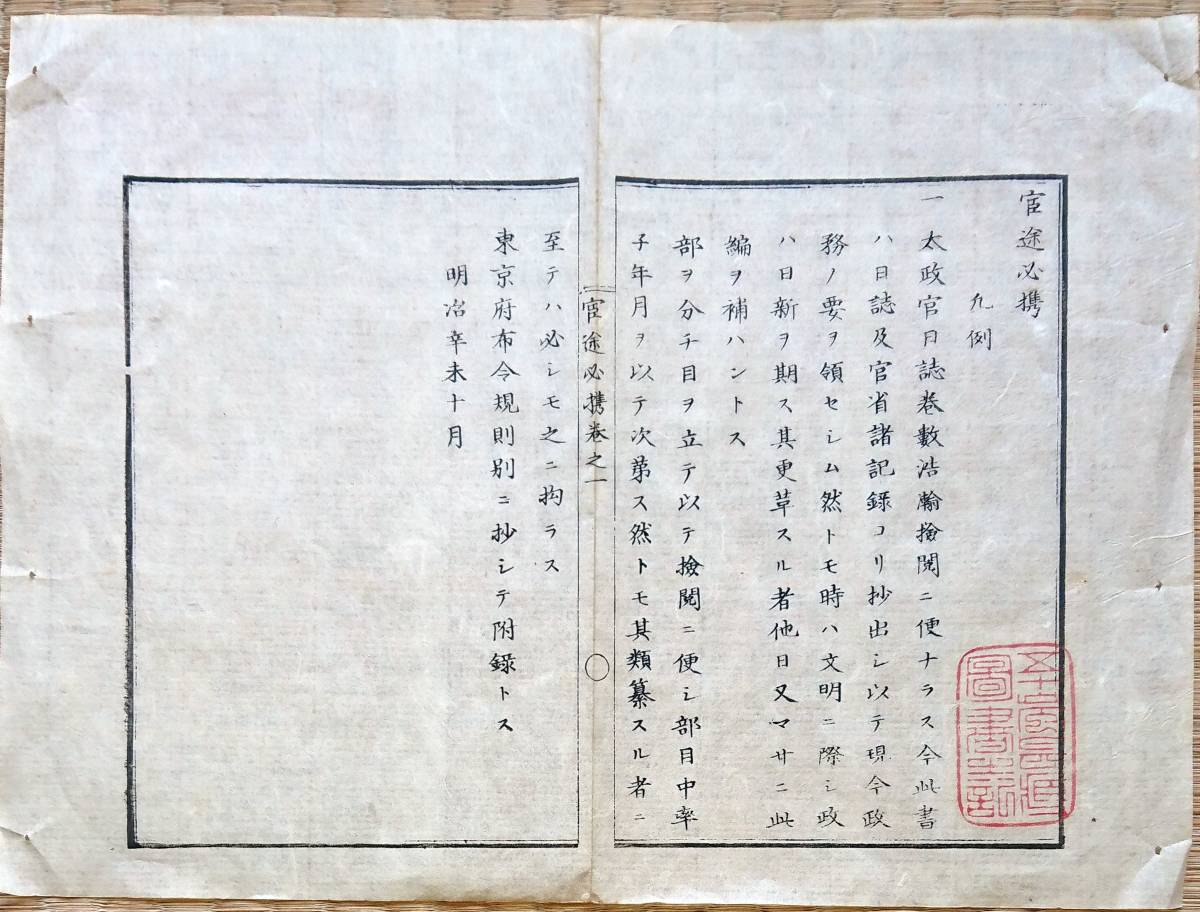 官途必携
凡例
一太政官日誌巻數浩瀚撿閲ニ便ナラス今此書
ハ日誌及官省諸記録ヨリ抄出シ以テ現今政
務ノ要ヲ領セシム然トモ時ハ文明ニ際シ政
ハ日新ヲ期ス其更革スル者他日又マサニ此
編ヲ補ハントス
部ヲ分チ目ヲ立テ以テ撿閲ニ便シ部目中率
子年月ヲ以テ次第ス然トモ其類纂スル者ニ
官途必携巻之一
至テハ必シモ之ニ拘ラス
東京府布令規則別ニ抄シテ附録トス
明治辛未十月
圖書記